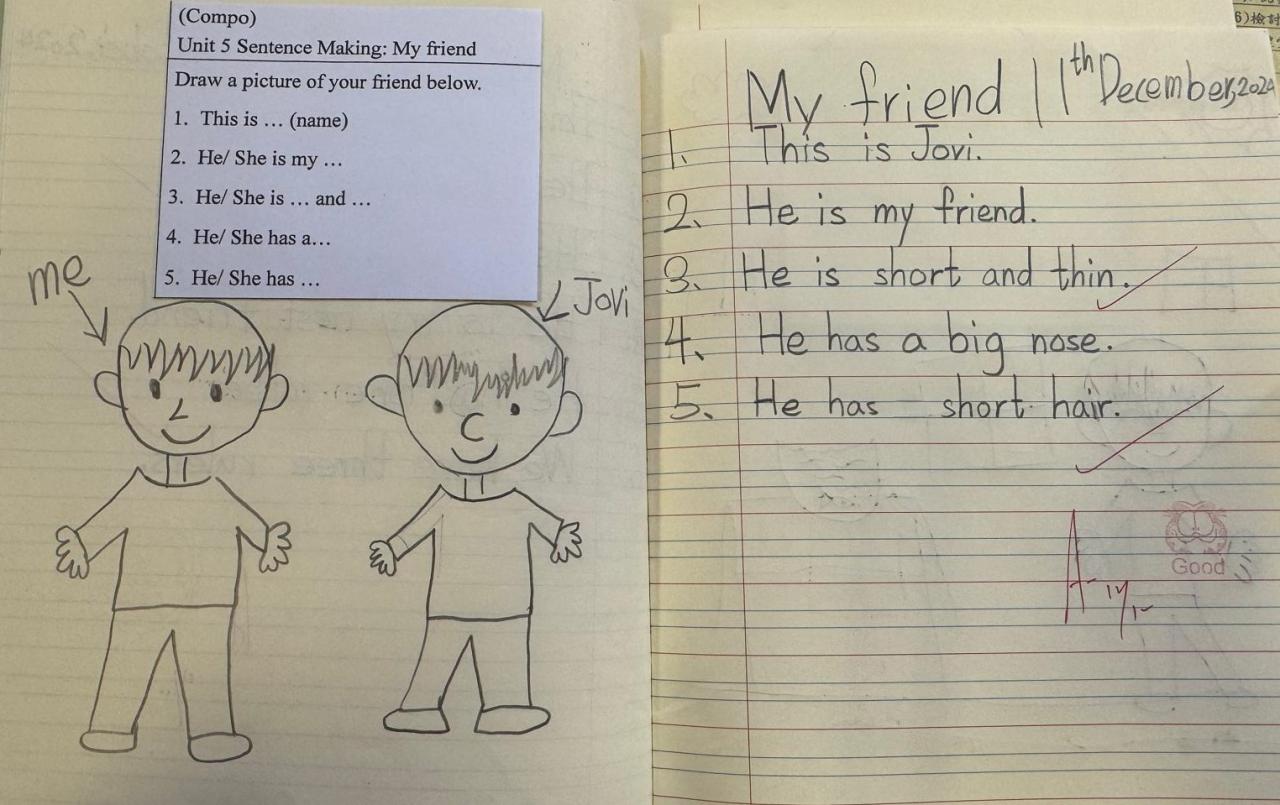 (Compo)
Unit 5 Sentence Making: My friend
Draw a picture of your friend below.
1. This is … (name)
2. He/ She is my …
3. He/ She is … and …
4. He/ She has a…
5. He/ She has …
me
Jovi
6)檢討
My friend 11th December, 2024
1. This is Jovi.
2. He is my friend.
3. He is short and thin.
4. He has a big nose.
5. He has short hair.
Good
A-